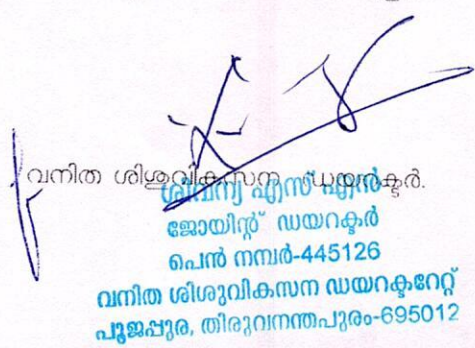 വനിത ശിശുവികസന ഡയറക്ടർ.
ശിവന്യ എസ് എൻ
ജോയിന്റ് ഡയറക്ടർ
പെൻ നമ്പർ-445126
വനിത ശിശുവികസന ഡയറക്ടറേറ്റ്
പൂജപ്പുര, തിരുവനന്തപുരം-695012